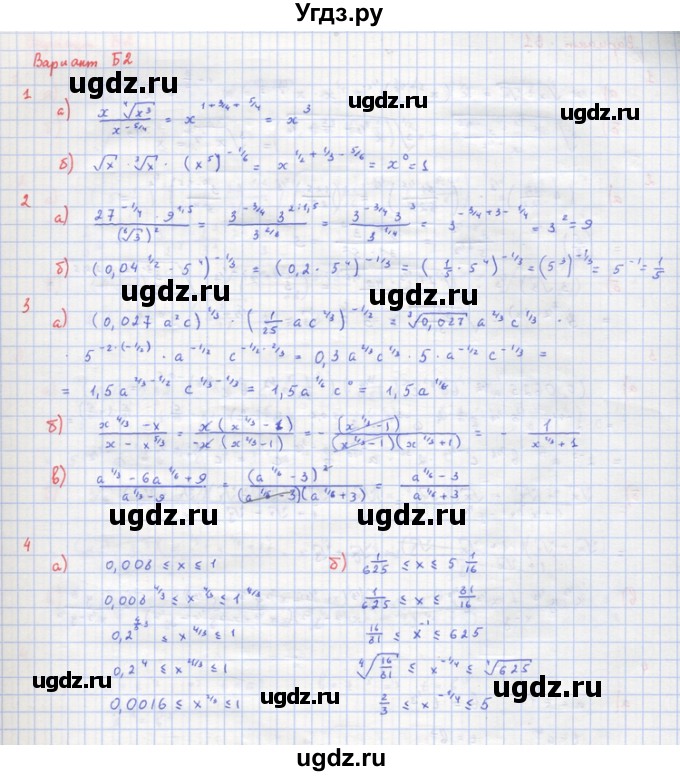 Угдз.ру
Вариант Б2
ugdz.ru ugdz.ru
1
а) x ∜x³ / x^(-5/4) = x^(1 + 3/4 + 5/4) = x^3
б) √x · ∛x · (x^5)^(-1/6) = x^(1/2 + 1/3 - 5/6) = x^0 = 1
ugdz.ru ugdz.ru
2
а) 27^(-1/4) · 9^(1,5) / (∛3)^2 = 3^(-3/4) 3^(2·1,5) / 3^(2/8) = 3^(-3/4) 3^3 / 3^(1/4) = 3^(-3/4 + 3 - 1/4) = 3^2 = 9
б) (0,04^(1/2) · 5^4)^(-1/3) = (0,2 · 5^4)^(-1/3) = (1/5 · 5^4)^(-1/3) = (5^3)^(-1/3) = 5^(-1) = 1/5
ugdz.ru ugdz.ru
3
а) (0,027 a²c)^(1/3) · (1/25 a c^(2/3))^(-1/2) = ∛0,027 a^(2/3) c^(1/3) ·
· 5^(-2·(-1/2)) · a^(-1/2) c^(-1/2·2/3) = 0,3 a^(2/3) c^(1/3) · 5 · a^(-1/2) c^(-1/3) =
= 1,5 a^(2/3 - 1/2) c^(1/3 - 1/3) = 1,5 a^(1/6) c^0 = 1,5 a^(1/6)
ugdz.ru ugdz.ru
б) x^(4/3) - x / x - x^(5/3) = x (x^(1/3) - 1) / -x (x^(2/3) - 1) = - (x^(1/3) - 1) / (x^(1/3) - 1)(x^(1/3) + 1) = - 1 / x^(1/3) + 1
в) a^(1/3) - 6a^(1/6) + 9 / a^(1/3) - 9 = (a^(1/6) - 3)^2 / (a^(1/6) - 3)(a^(1/6) + 3) = a^(1/6) - 3 / a^(1/6) + 3
ugdz.ru ugdz.ru
4
а) 0,008 ≤ x ≤ 1
0,008^(4/3) ≤ x^(4/3) ≤ 1^(4/3)
≤ x^(4/3) ≤ 1
0,2^4 ≤ x^(4/3) ≤ 1
0,0016 ≤ x ≤ 1
б) 1/625 ≤ x ≤ 5 1/16
1/625 ≤ x ≤ 81/16
16/81 ≤ x^(-1) ≤ 625
∜(16/81) ≤ x^(-1/4) ≤ ∜625
2/3 ≤ x^(-1/4) ≤ 5
ugdz.ru ugdz.ru ugdz.ru
ugdz.ru ugdz.ru ugdz.ru
ugdz.ru